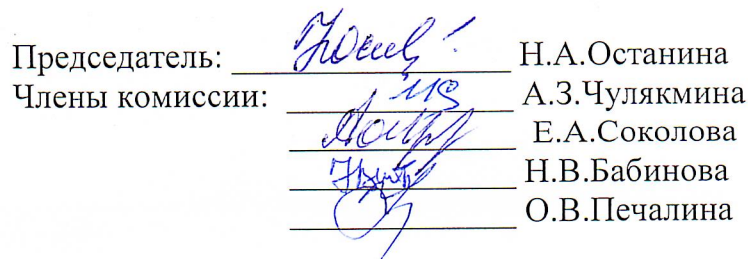 Председатель: Н.А.Останина
Члены комиссии: А.З.Чулякмина
Е.А.Соколова
Н.В.Бабинова
О.В.Печалина